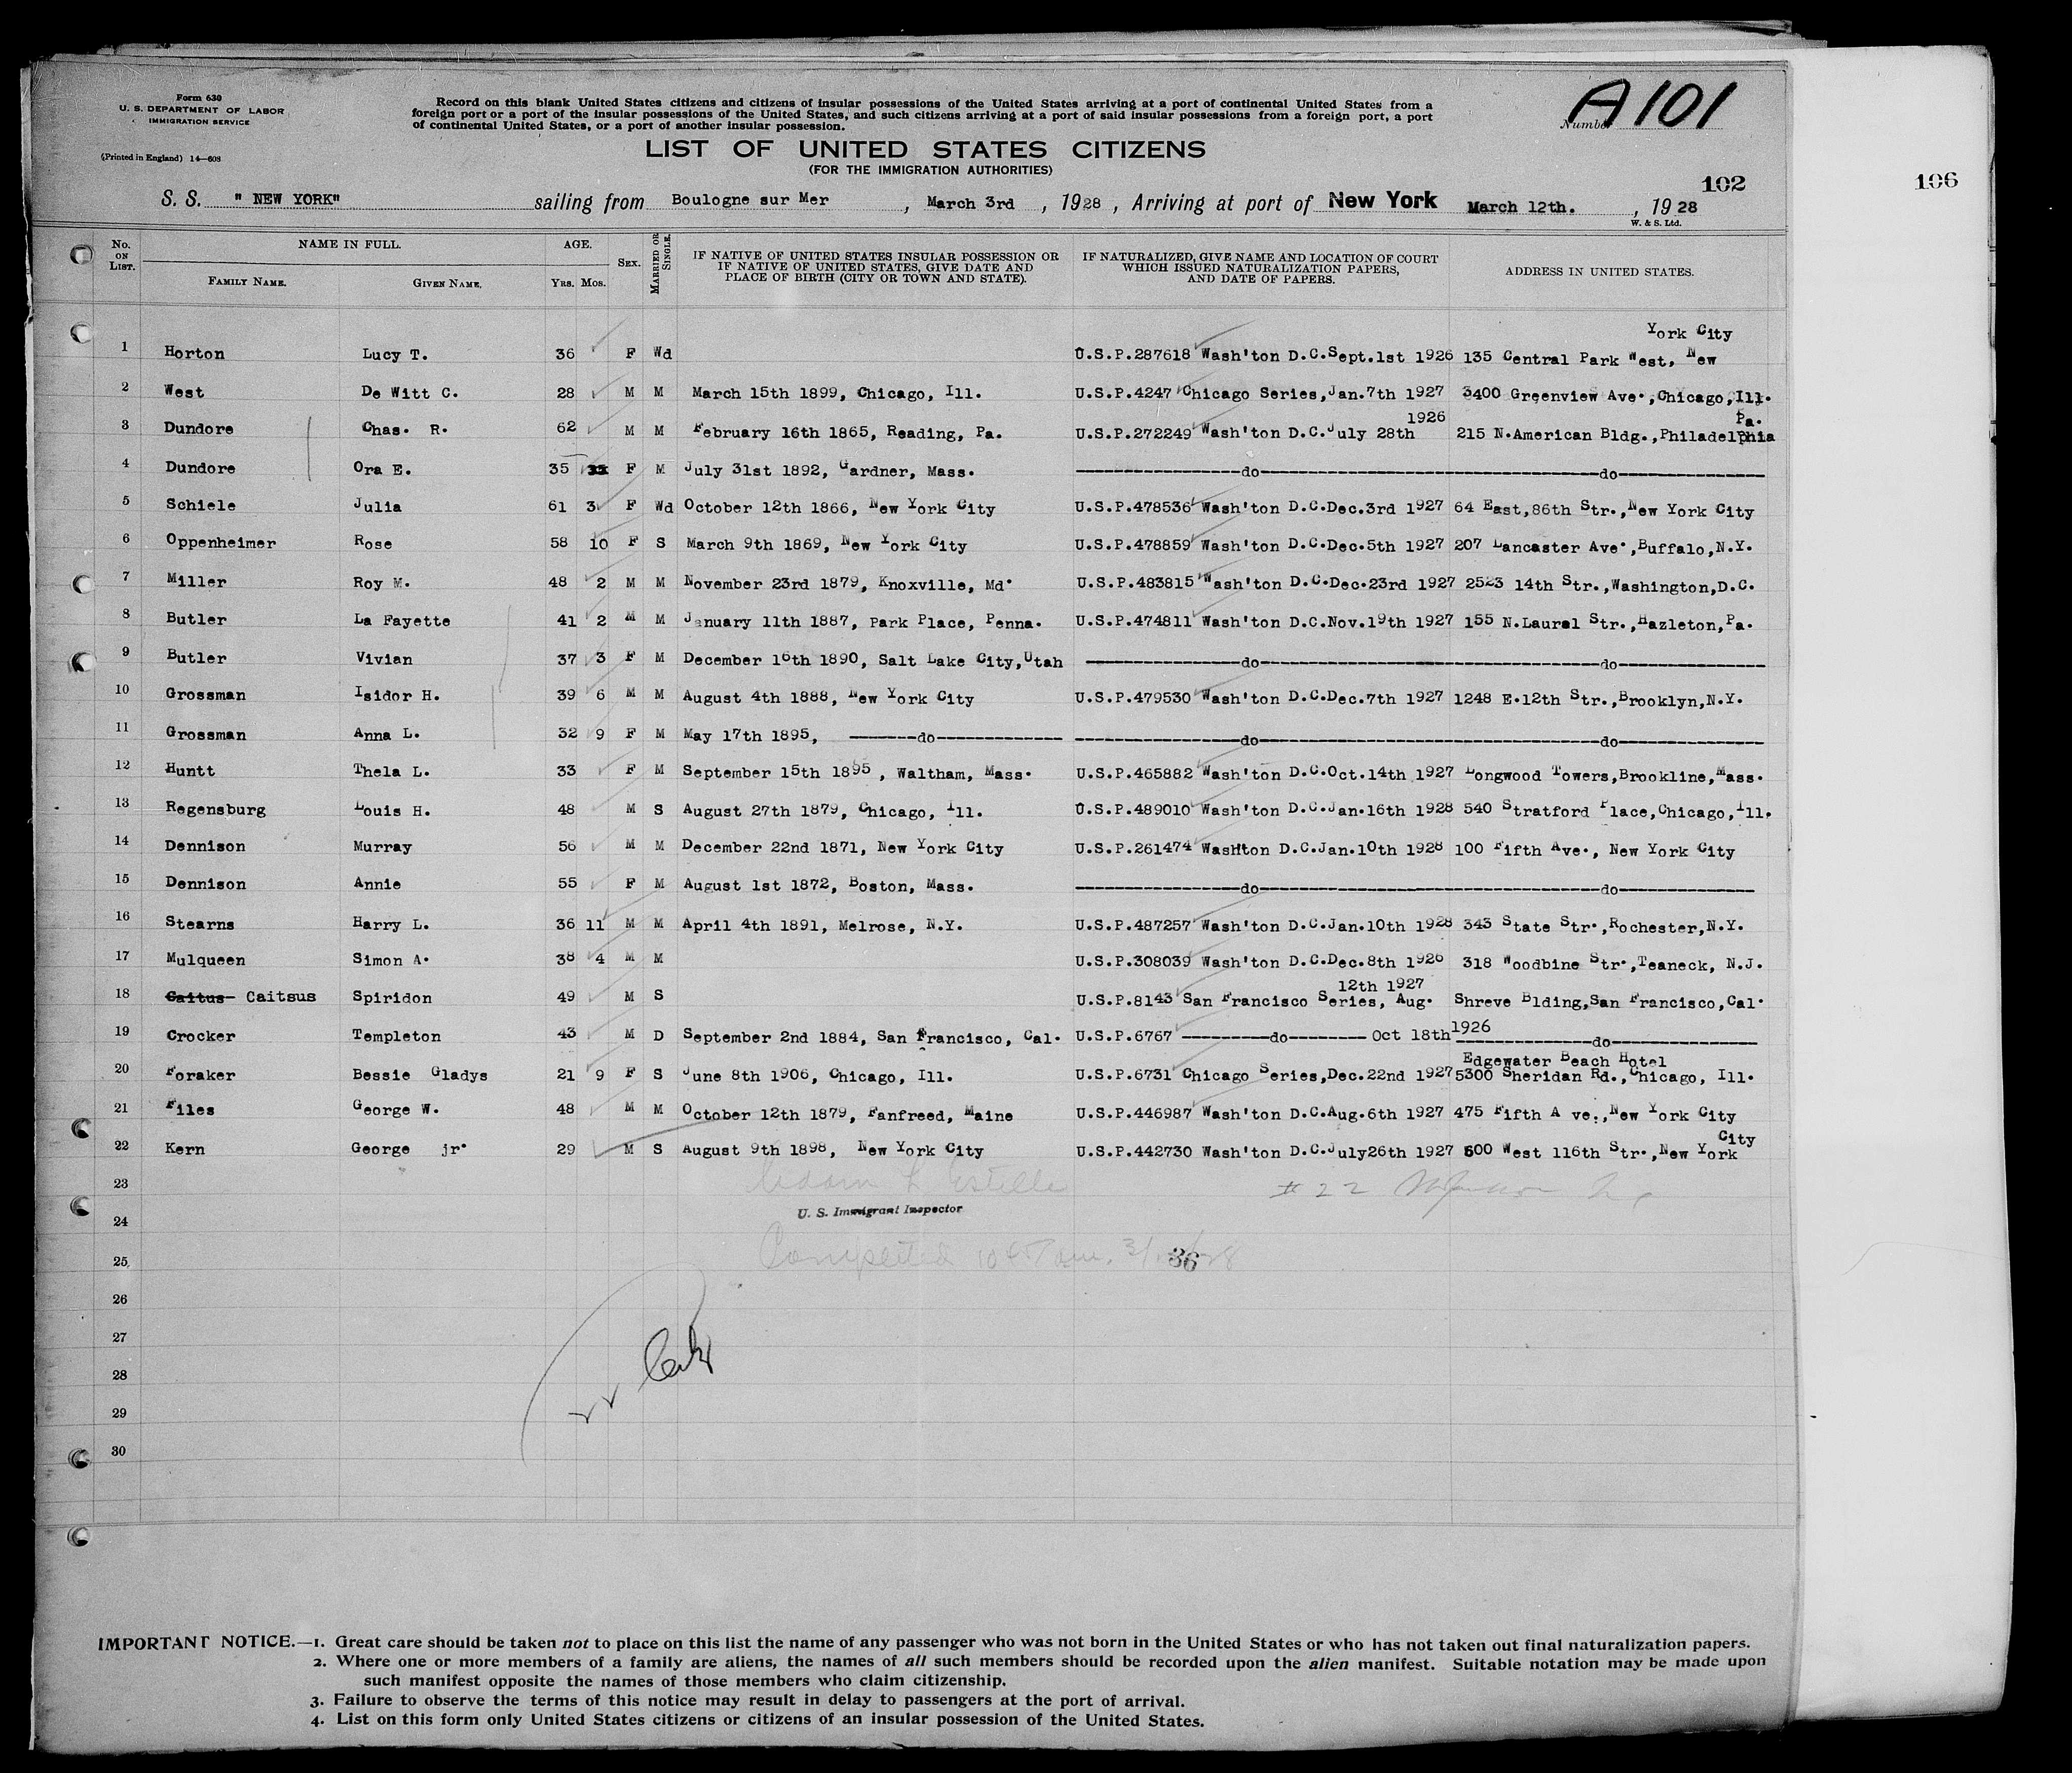 Form 630
U. S. DEPARTMENT OF LABOR
IMMIGRATION SERVICE
(Printed in England) 14—608
Record on this blank United States citizens and citizens of insular possessions of the United States arriving at a port of continental United States from a
foreign port or a port of the insular possessions of the United States, and such citizens arriving at a port of said insular possessions from a foreign port, a port
of continental United States, or a port of another insular possession.
Number A101
LIST OF UNITED STATES CITIZENS
(FOR THE IMMIGRATION AUTHORITIES)
102
106
S. S. " NEW YORK" sailing from Boulogne sur Mer , March 3rd , 1928 , Arriving at port of New York March 12th. , 1928
W. & S. Ltd.
No. ON LIST. NAME IN FULL. FAMILY NAME. GIVEN NAME. AGE. YRS. MOS. SEX. MARRIED OR SINGLE. IF NATIVE OF UNITED STATES INSULAR POSSESSION OR IF NATIVE OF UNITED STATES, GIVE DATE AND PLACE OF BIRTH (CITY OR TOWN AND STATE). IF NATURALIZED, GIVE NAME AND LOCATION OF COURT WHICH ISSUED NATURALIZATION PAPERS, AND DATE OF PAPERS. ADDRESS IN UNITED STATES.
York City
1 Horton Lucy T. 36 F Wd U.S.P.287618 Wash'ton D.C.Sept.1st 1926 135 Central Park West, New
2 West De Witt C. 28 M M March 15th 1899, Chicago, Ill. U.S.P.4247 Chicago Series,Jan.7th 1927 3400 Greenview Ave.,Chicago,Ill.
1926 Pa.
3 Dundore Chas. R. 62 M M February 16th 1865, Reading, Pa. U.S.P.272249 Wash'ton D.C.July 28th 215 N.American Bldg.,Philadelphia
4 Dundore Ora E. 35 F M July 31st 1892, Gardner, Mass. ----do---- ----do----
5 Schiele Julia 61 3 F Wd October 12th 1866, New York City U.S.P.478536 Wash'ton D.C.Dec.3rd 1927 64 East,86th Str.,New York City
6 Oppenheimer Rose 58 10 F S March 9th 1869, New York City U.S.P.478859 Wash'ton D.C.Dec.5th 1927 207 Lancaster Ave.,Buffalo,N.Y.
7 Miller Roy M. 48 2 M M November 23rd 1879, Knoxville, Md. U.S.P.483815 Wash'ton D.C.Dec.23rd 1927 2523 14th Str.,Washington,D.C.
8 Butler La Fayette 41 2 M M January 11th 1887, Park Place, Penna. U.S.P.474811 Wash'ton D.C.Nov.19th 1927 155 N.Laurel Str.,Hazleton,Pa.
9 Butler Vivian 37 3 F M December 16th 1890, Salt Lake City,Utah ----do---- ----do----
10 Grossman Isidor H. 39 6 M M August 4th 1888, New York City U.S.P.479530 Wash'ton D.C.Dec.7th 1927 1248 E.12th Str.,Brooklyn,N.Y.
11 Grossman Anna L. 32 9 F M May 17th 1895, ----do---- ----do---- ----do----
12 Huntt Thela L. 33 F M September 15th 1895 , Waltham, Mass. U.S.P.465882 Wash'ton D.C.Oct.14th 1927 Longwood Towers,Brookline,Mass.
13 Regensburg Louis H. 48 M S August 27th 1879, Chicago, Ill. U.S.P.489010 Wash'ton D.C.Jan.16th 1928 540 Stratford Place,Chicago,Ill.
14 Dennison Murray 56 M M December 22nd 1871, New York City U.S.P.261474 Washton D.C.Jan.10th 1928 100 Fifth Ave., New York City
15 Dennison Annie 55 F M August 1st 1872, Boston, Mass. ----do---- ----do----
16 Stearns Harry L. 36 11 M M April 4th 1891, Melrose, N.Y. U.S.P.487257 Wash'ton D.C.Jan.10th 1928 343 State Str.,Rochester,N.Y.
17 Mulqueen Simon A. 38 4 M M U.S.P.308039 Wash'ton D.C.Dec.8th 1926 318 Woodbine Str.,Teaneck, N.J.
12th 1927
18 Caitus- Caitsus Spiridon 49 M S U.S.P.8143 San Francisco Series, Aug. Shreve Blding,San Francisco,Cal.
1926
19 Crocker Templeton 43 M D September 2nd 1884, San Francisco, Cal. U.S.P.6767 ----do---- Oct 18th ----do----
Edgewater Beach Hotel
20 Foraker Bessie Gladys 21 9 F S June 8th 1906, Chicago, Ill. U.S.P.6731 Chicago Series,Dec.22nd 1927 5300 Sheridan Rd.,Chicago, Ill.
21 Files George W. 48 M M October 12th 1879, Fanfreed, Maine U.S.P.446987 Wash'ton D.C.Aug.6th 1927 475 Fifth A ve.,New York City
City
22 Kern George jr. 29 M S August 9th 1898, New York City U.S.P.442730 Wash'ton D.C.July26th 1927 600 West 116th Str.,New York
23 # 22
U. S. Immigrant Inspector
24
25 Completed 36
26
27
28
29
30
IMPORTANT NOTICE.—1. Great care should be taken not to place on this list the name of any passenger who was not born in the United States or who has not taken out final naturalization papers.
2. Where one or more members of a family are aliens, the names of all such members should be recorded upon the alien manifest. Suitable notation may be made upon
such manifest opposite the names of those members who claim citizenship.
3. Failure to observe the terms of this notice may result in delay to passengers at the port of arrival.
4. List on this form only United States citizens or citizens of an insular possession of the United States.